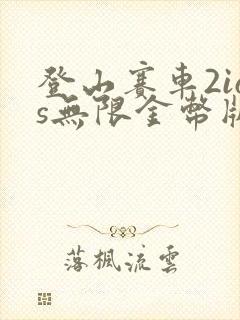 登山賽車2io
s無限金幣版
落楓流雲